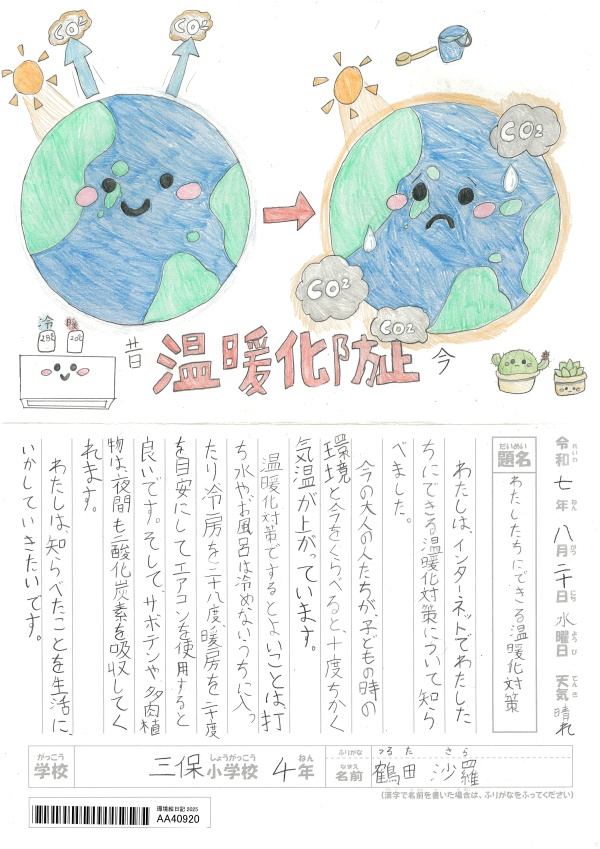 CO2
CO2
CO2
CO2
CO2
冷
暖
28℃
20℃
昔
温暖化防止
今
令和七年八月二十日水曜日 天気 晴れ
れいわ ねん がつ にち ようび てんき
だいめい
題名
わたしたちにできる温暖化対策
わたしは、インターネットでわたした
ちにできる温暖化対策について知ら
べました。
今の大人の人たちが、子どもの時の
環境と今をくらべると、十度ちかく
気温が上がっています。
温暖化対策でするとよいことは打
ち水やお風呂は冷めないうちに入っ
たり冷房を二十八度、暖房を二十度
を目安にしてエアコンを使用すると
良いです。そして、サボテンや多肉植
物は、夜間も二酸化炭素を吸収してく
れます。
わたしは、知らべたことを生活に、
いかしていきたいです。
がっこう しょうがっこう ねん
学校 三保小学校 4年
ふりがな つるた さら
なまえ
名前 鶴田 沙羅
(漢字で名前を書いた場合は、ふりがなをふってください)
環境絵日記 2025
AA40920